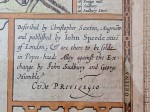 Described by Christopher Saxton, Augmented
and published by John Speede
of London, & are there to be sold
in Popes head Alley against the Ex
change by John Sudbury and George
Humble.
Cum Privilegio